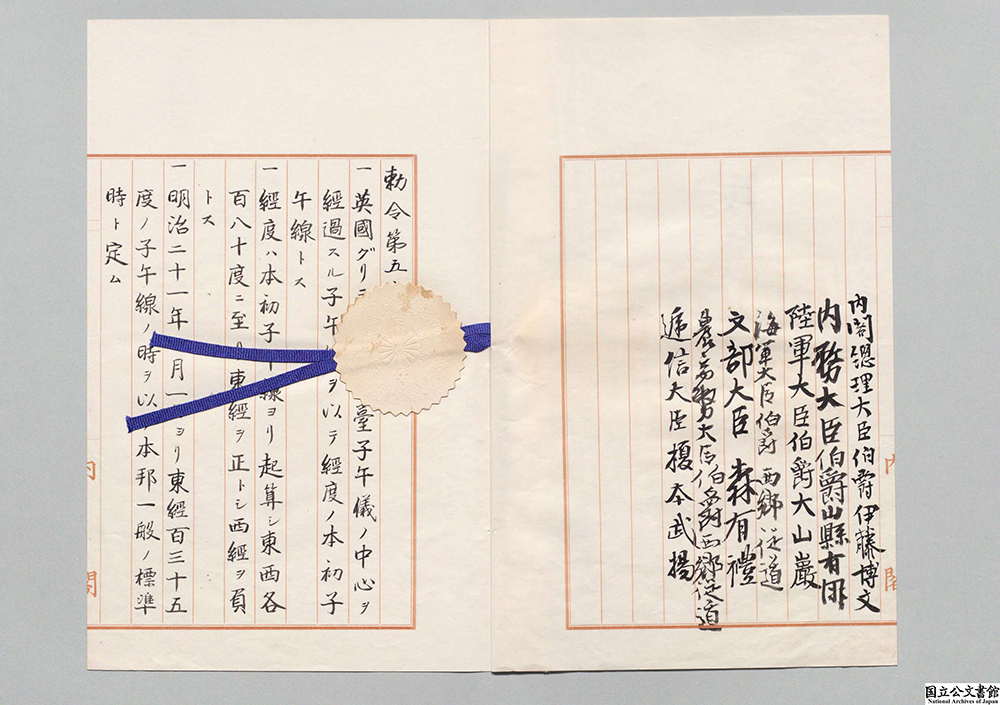 内閣總理大臣伯爵伊藤博文
内務大臣伯爵山縣有朋
陸軍大臣伯爵大山巖
海軍大臣伯爵西郷従道
文部大臣森有禮
農商務大臣伯爵西郷従道
逓信大臣榎本武揚
内閣
勅令第五
一英國グリニ臺子午儀ノ中心ヲ
經過スル子午ヲ以テ經度ノ本初子
午線トス
一經度ハ本初子午線ヨリ起算シ東西各
百八十度ニ至リ東經ヲ正トシ西經ヲ負
トス
一明治二十一年月一ヨリ東經百三十五
度ノ子午線ノ時ヲ以本邦一般ノ標準
時ト定ム
内閣
国立公文書館
National Archives of Japan